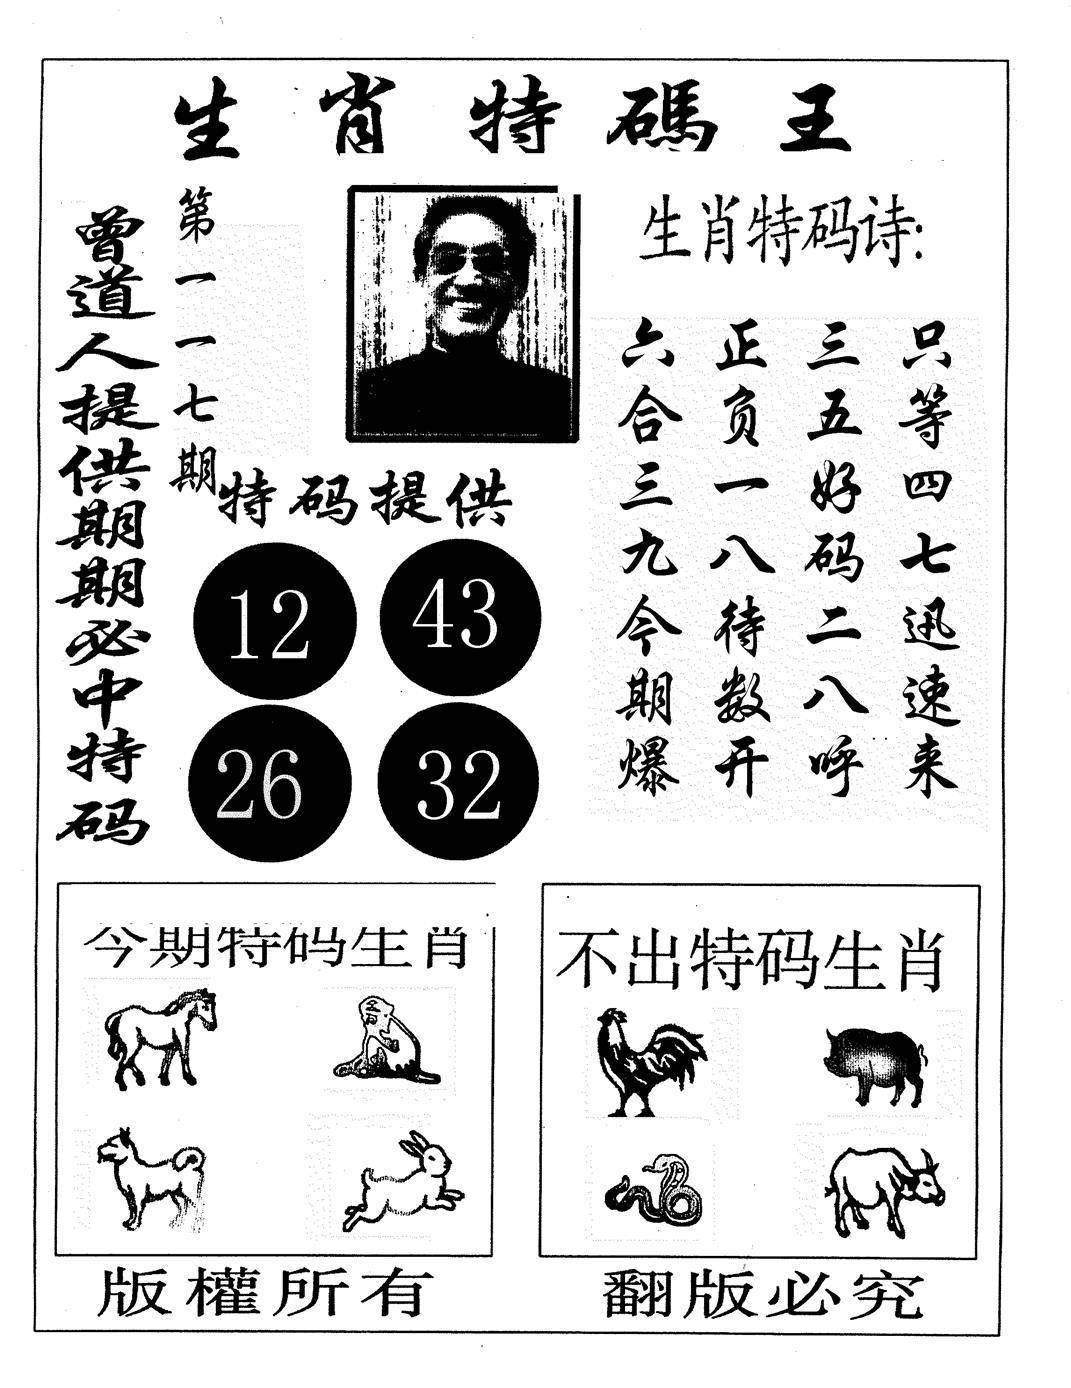 生肖特碼王
曾道人提供期期必中特码
第一一七期
生肖特码诗:
六合三九今期爆
正负一八待数开
三五好码二八呼
只等四七迅速来
特码提供
12 43
26 32
今期特码生肖
不出特码生肖
版權所有
翻版必究